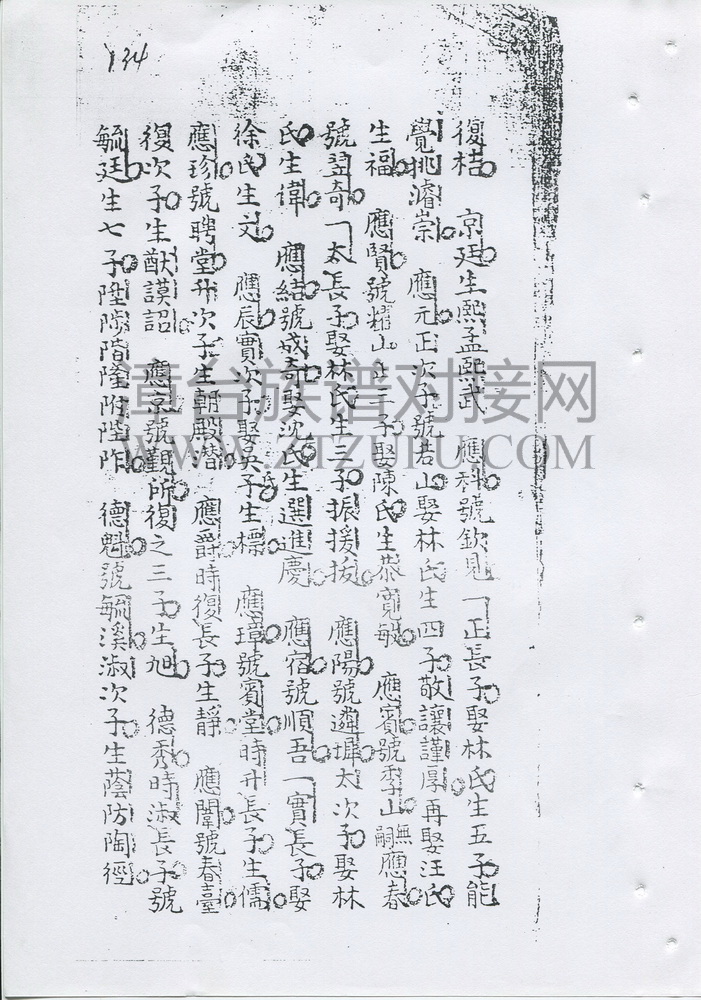 134
復桔 京廷生熙孟熙武 應科號欽見一正長子娶林氏生五子能
覺挑濬崇 應元正次子號若山娶林氏生四子敬讓謹厚再娶汪氏
生福 應賢號耀山正三子娶陳氏生恭寬敏 應賓號季山無嗣應春
號翌奇一太長子娶林氏生三子振援拔 應陽號遴墀太次子娶林
氏生偉 應結號成奇娶沈氏生選進慶 應宿號順吾一實長子娶
徐氏生文 應辰實次子娶吳氏子生標 應璋號賓堂時升長子生儒
應珍號聘堂升次子生朝殿潜 應爵時復長子生靜 應闈號春臺
復次子生猷謨詔 應京號觀所復之三子生旭 德秀時淑長子號
毓廷生七子陞隙階隆附陛阼 德魁號毓溪淑次子生蔭防陶徑
章台族谱对接网
WWW.ZTZUPU.COM